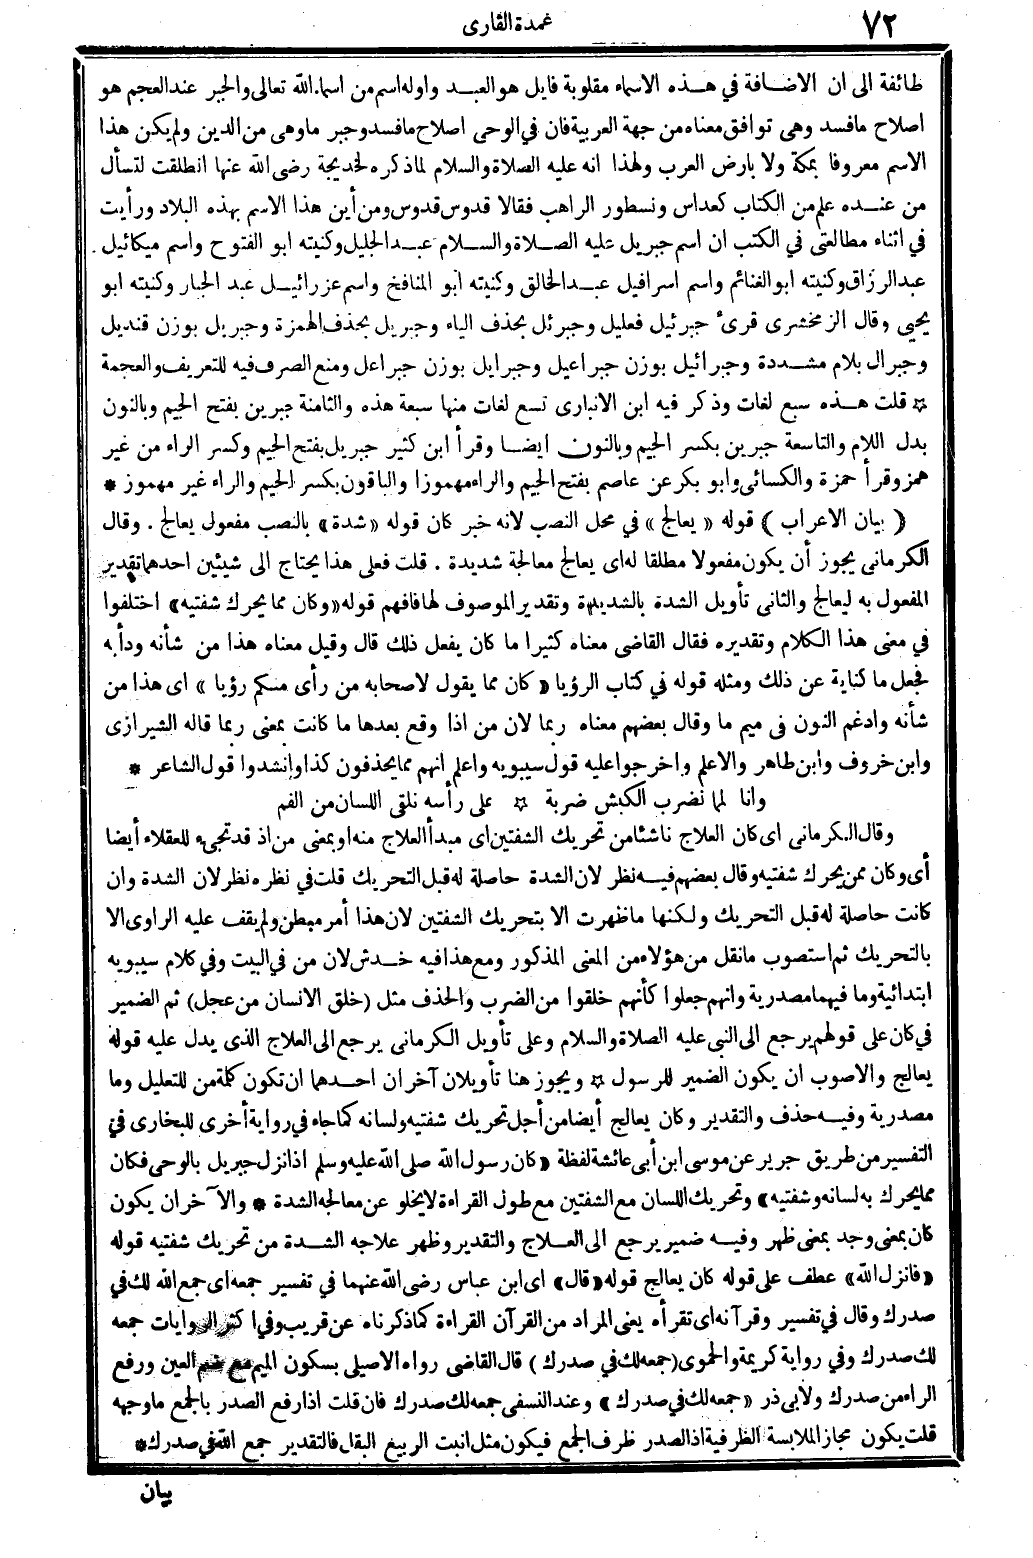 ٧٢
عمدة القارى
طائفة الى ان الاضافة في هذه الاسماء مقلوبة فايل هو العبد واوله اسم من اسماء الله تعالى والجبر عند العجم هو
اصلاح ما فسد وهى توافق معناه من جهة العربية فان في الوحى اصلاح ما فسد وجبر ما وهى من الدين ولم يكن هذا
الاسم معروفا بمكة ولا بارض العرب ولهذا انه عليه الصلاة والسلام لما ذكره لخديجة رضى الله عنها انطلقت لتسأل
من عنده علم من الكتاب كعداس ونسطور الراهب فقالا قدوس قدوس ومن أين هذا الاسم بهذه البلاد ورأيت
في اثناء مطالعتى في الكتب ان اسم جبريل عليه الصلاة والسلام عبد الجليل وكنيته ابو الفتوح واسم ميكائيل
عبد الرزاق وكنيته ابو الغنائم واسم اسرافيل عبد الخالق وكنيته ابو المنافخ واسم عزرائيل عبد الجبار وكنيته ابو
يحيى وقال الزمخشرى قرىء جبرئيل فعليل وجبرئل بحذف الياء وجبريل بحذف الهمزة وجبريل بوزن قنديل
وجبرال بلام مشددة وجبرائيل بوزن جبراعيل وجبرايل بوزن جبراعل ومنع الصرف فيه للتعريف والعجمة
☆ قلت هذه سبع لغات وذكر فيه ابن الانبارى تسع لغات منها سبعة هذه والثامنة جبرين بفتح الجيم وبالنون
بدل اللام والتاسعة جبرين بكسر الجيم وبالنون ايضا وقرأ ابن كثير جبريل بفتح الجيم وكسر الراء من غير
همز وقرأ حمزة والكسائى وابو بكر عن عاصم بفتح الجيم والراء مهموزا والباقون بكسر الجيم والراء غير مهموز *
( بيان الاعراب ) قوله « يعالج » في محل النصب لانه خبر كان قوله « شدة » بالنصب مفعول يعالج . وقال
الكرمانى يجوز أن يكون مفعولا مطلقا له اى يعالج معالجة شديدة . قلت فعلى هذا يحتاج الى شيئين احدهما تقدير
المفعول به ليعالج والثانى تأويل الشدة بالشديدة وتقدير الموصوف لها فافهم قوله « وكان مما يحرك شفتيه » اختلفوا
في معنى هذا الكلام وتقديره فقال القاضى معناه كثيرا ما كان يفعل ذلك قال وقيل معناه هذا من شأنه ودأبه
فجعل ما كناية عن ذلك ومثله قوله في كتاب الرؤيا « كان مما يقول لاصحابه من رأى منكم رؤيا » اى هذا من
شأنه وادغم النون فى ميم ما وقال بعضهم معناه ربما لان من اذا وقع بعدها ما كانت بمعنى ربما قاله الشيرازى
وابن خروف وابن طاهر والاعلم واخرجوا عليه قول سيبويه واعلم انهم مما يحذفون كذا وانشدوا قول الشاعر *
وانا لمما نضرب الكبش ضربة ☆ على رأسه تلقى اللسان من الفم
وقال الكرمانى اى كان العلاج ناشئا من تحريك الشفتين اى مبدأ العلاج منه او بمعنى من اذ قد تجىء للعقلاء أيضا
أى وكان ممن يحرك شفتيه وقال بعضهم فيه نظر لان الشدة حاصلة له قبل التحريك قلت في نظره نظر لان الشدة وان
كانت حاصلة له قبل التحريك ولكنها ما ظهرت الا بتحريك الشفتين لان هذا أمر مبطن ولم يقف عليه الراوى الا
بالتحريك ثم استصوب ما نقل من هؤلاء من المعنى المذكور ومع هذا فيه خدش لان من في البيت وفي كلام سيبويه
ابتدائية وما فيهما مصدرية وانهم جعلوا كأنهم خلقوا من الضرب والحذف مثل (خلق الانسان من عجل) ثم الضمير
في كان على قولهم يرجع الى النبى عليه الصلاة والسلام وعلى تأويل الكرمانى يرجع الى العلاج الذى يدل عليه قوله
يعالج والاصوب ان يكون الضمير للرسول ☆ ويجوز هنا تأويلان آخران احدهما ان تكون كلمة من للتعليل وما
مصدرية وفيه حذف والتقدير وكان يعالج أيضا من أجل تحريك شفتيه ولسانه كما جاء في رواية أخرى للبخارى في
التفسير من طريق جرير عن موسى ابن أبى عائشة لفظة « كان رسول الله صلى الله عليه وسلم اذا نزل جبريل بالوحى فكان
مما يحرك به لسانه وشفتيه » وتحريك اللسان مع الشفتين مع طول القراءة لا يخلو عن معالجة الشدة * والآخر ان يكون
كان بمعنى وجد بمعنى ظهر وفيه ضمير يرجع الى العلاج والتقدير وظهر علاجه الشدة من تحريك شفتيه قوله
« فانزل الله » عطف على قوله كان يعالج قوله « قال » اى ابن عباس رضى الله عنهما في تفسير جمعه اى جمع الله لك في
صدرك وقال في تفسير وقرآنه اى تقرأه يعنى المراد من القرآن القراءة كما ذكرناه عن قريب وفي اكثر الروايات جمعه
لك صدرك وفي رواية كريمة والحموى (جمعه لك في صدرك) قال القاضى رواه الاصيلى بسكون الميم مع ضم العين ورفع
الراء من صدرك ولابى ذر « جمعه لك في صدرك » وعند النسفى جمعه لك صدرك فان قلت اذا رفع الصدر بالجمع ما وجهه
قلت يكون مجاز الملابسة الظرفية اذ الصدر ظرف الجمع فيكون مثل انبت الربيع البقل فالتقدير جمع الله في صدرك *
بيان